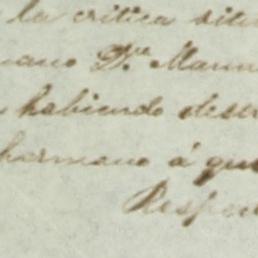 la critica situ
mano Dn. Manu
habiendo dest
hermano á que
Respon